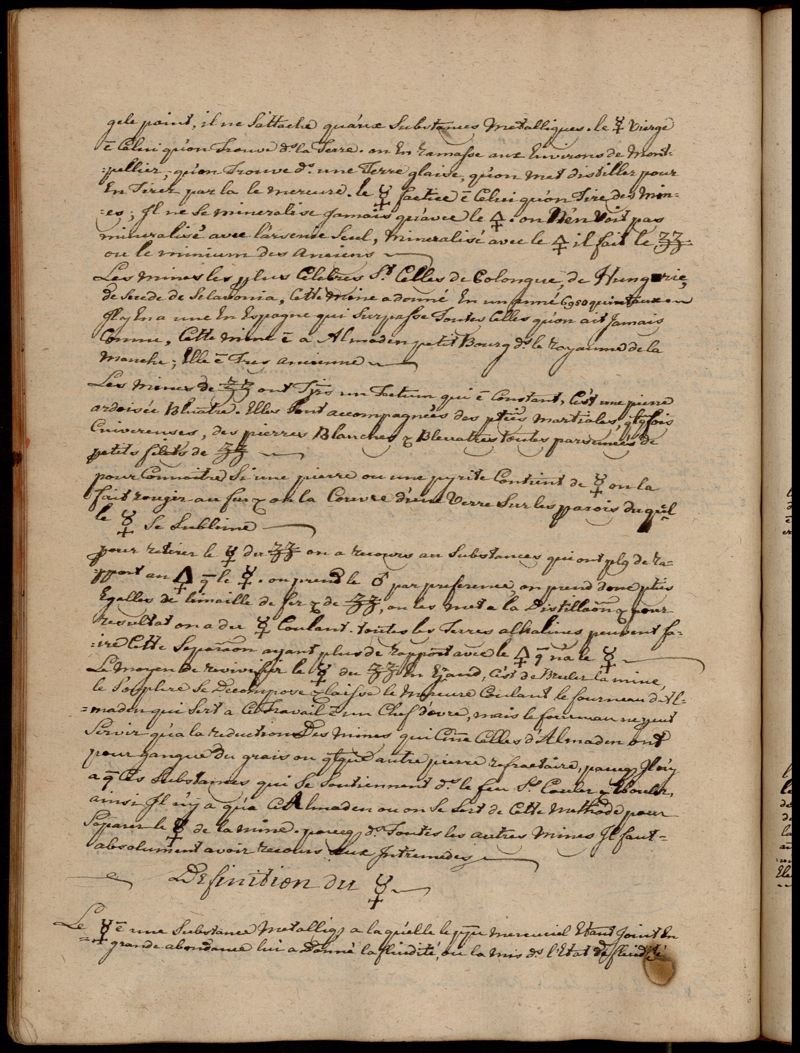 gele point, il ne s'attache qu'aux substances metalliques. le ☿ vierge
ē celui qu'on trouve ds. la terre. on en ramasse aux environs de mont-
-pellier, qu'on trouve ds. une terre glaise, qu'on met distiller pour
en tirer par la le mercure. le ☿ factice ē celui qu'on tire des min-
-es; il ne se mineralise jamais qu'avec le 🜍. on n'en voit pas
mineralisé avec l'arsenic seul, mineralisé avec le 🜍 il fait le 33
ou le minium des anciens
Les mines les plus celebres st. celles de Cologne, de Hungrie,
de Suede de Sclavonia, cette mine a donné en un anné 6980 quintaux
Il y en a une en Espagne qui surpasse toutes celles qu'on ait jamais
connu, cette mine ē a Almaden petit Bourg ds. le royaume de la
manche; elle ē tres ancienne
Les mines de 33 ont tjrs un factum qui ē constant, c'est une pierre
ardoisée bluatre. Elles sont accompagnées des pties martiales, qlqfois
cuivreuses, des pierres blanches & bleuatres toutes parsemées de
petits filets de 33
pour connoitre si une pierre ou une pyrite contient de ☿ on la
fait rougir au feu & on la couvre d'une verre sur les parois duql
le ☿ se sublime
pour retirer le ☿ du 33 on a recours au substances qui ont plq de ra-
-pport au 🜍 q̄ le ☿. on prend le ♂ par preference, on prend donc pties
egalles de limaille de fer & de 33, on les met a la distillaōn & pour
resultat on a du ☿ coulant. toutes les terres alkalines peuvent fa-
-ire cette separaōn ayant plus de rapport avec le 🜍 q̄ n'a le ☿
Le moyen de revivifier le ☿ du 33 en grand, c'est de bruler la mine,
le souphre se decompose & laisse le mercure coulant. le fourneau d'Al-
=maden qui sert a ce travail ē un chef d'ovre, mais le fourneau ne peut
servir q'a la reduction des mines qui cōme celles d'Almaden ont
pour gangue du grais ou qlque autre pierre refractaire, parcq Il n'y
a q̄ ces substances qui se soutiennent ds. le feu ss. couler & bouler,
ainsi Il n'y a qu'a Almaden ou on se sert de cette methode pour
separer le ☿ de la mine. parcq ds. toutes les autres mines Il faut=
absolument avoir recours aux intremedes
Definition du ☿
Le ☿ ē une substance metalliq a la quelle le ppe mercuriel etant joint en
=grande abondance lui a donné la fluidité, ou la mis ds. l'etat de fluidité